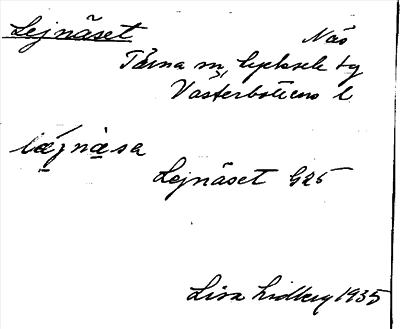 Lejnäset Näs
Tärna sn, Lycksele tg
Västerbottens l
lǽjnàsa
Lejnäset G25
Lisa Lidberg 1935